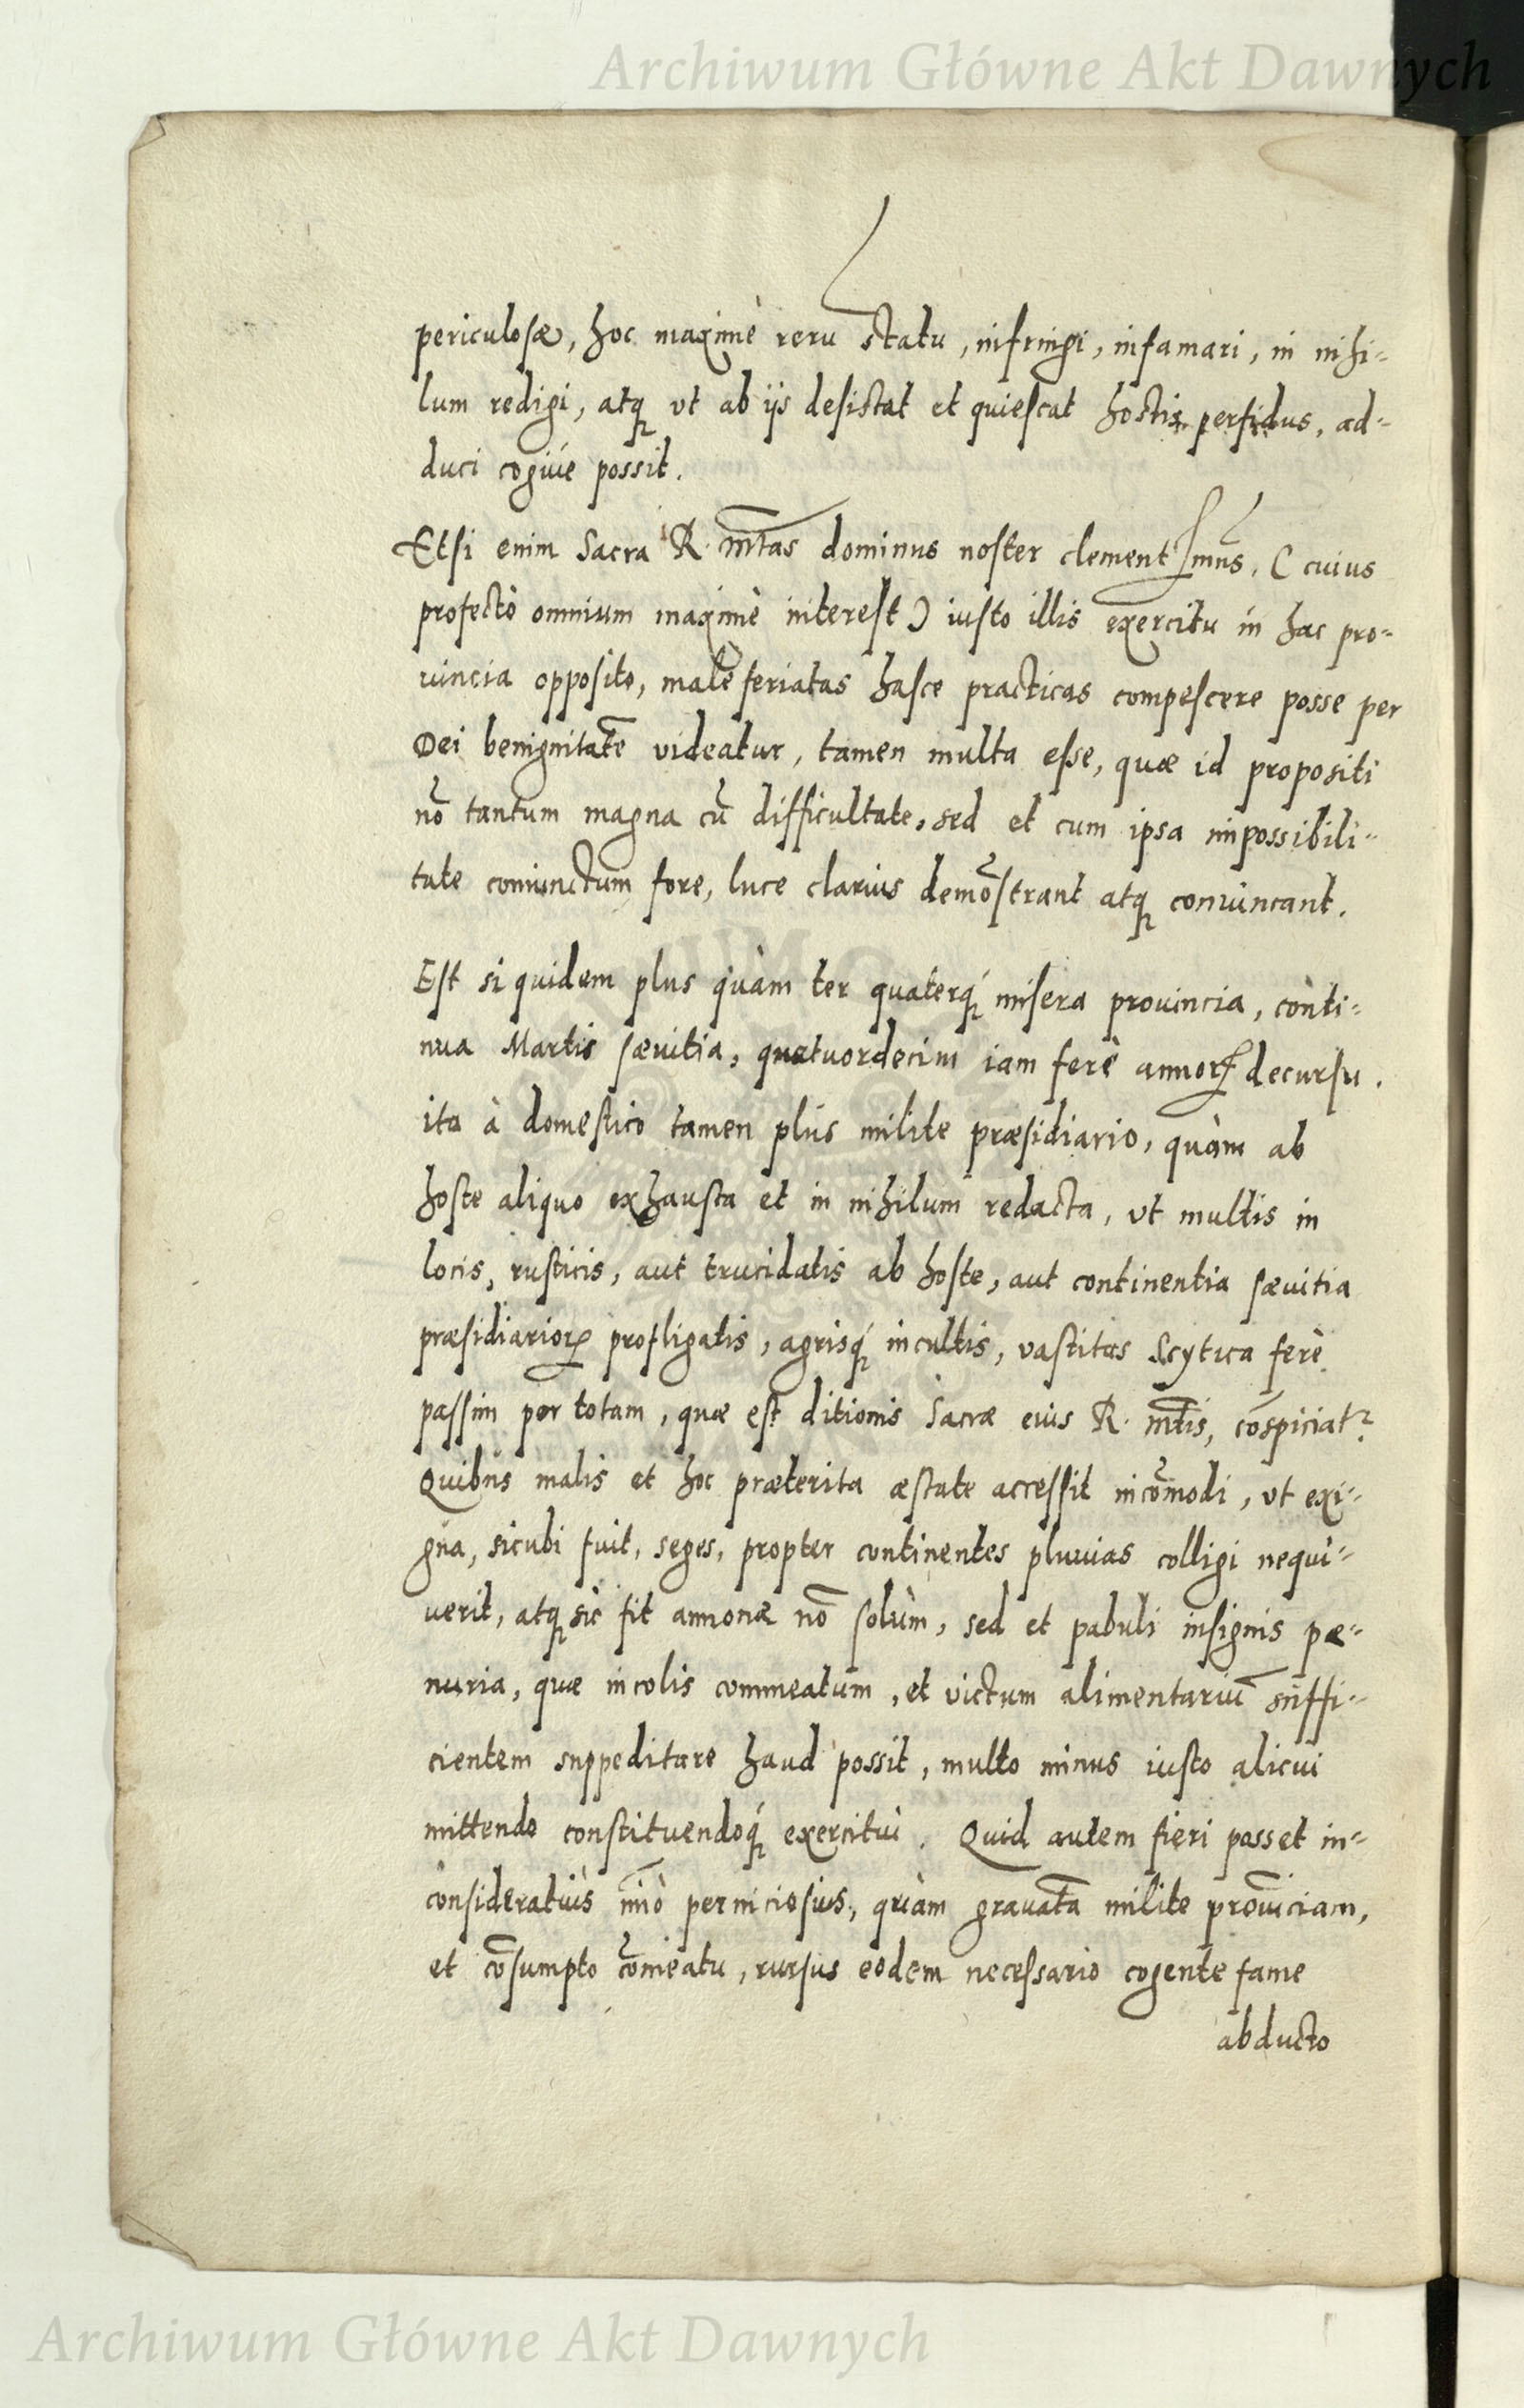 Archiwum Główne Akt Dawnych
periculosæ, hoc maximè reru statu, infringi, infamari, in nihi-
lum redigi, atq̨ vt ab ijs desistat et quiescat hostis perfidus, ad-
duci cogiúe possit.
Etsi enim Sacra R. mtas dominus noster clementissmus, (cuius
profectò omnium maximè interest) iusto illis exercitu in hac pro-
uincia opposito, malè feriatas hasce practicas compescere posse per
Dei benignitatē videatur, tamen multa esse, quæ id propositi
nō tantum magna cū difficultate, sed et cum ipsa impossibili-
tate coniunctum fore, luce clarius demōstrant atq̨ conuincant.
Est siquidem plus quàm ter quaterq́ misera prouincia, conti-
nua Martis sæuitia, quatuordecim iam ferè annorꝝ decursu.
ita à domestico tamen plus milite præsidiario, quàm ab
hoste aliquo exhausta et in nihilum redacta, vt multis in
locis, rusticis, aut trucidatis ab hoste, aut continentia sæuitia
præsidiarioꝝ profligatis, agrisq́ incultis, vastitas Scytica ferè
passim per totam, quæ est ditionis Sacræ eius R. mtis, cōspiciatr.
Quibus malis et hoc præterita æstate accessit incōmodi, vt exi-
gua, sicubi fuit, seges, propter continentes pluuias colligi nequi-
uerit, atq̨ sic fit annonæ nō solùm, sed et pabuli insignis pæ-
nuria, quæ incolis commeatum, et victum alimentariū suffi-
cientem suppeditare haud possit, multo minus iusto alicui
mittendo constituendoq́ exercitui. Quid autem fieri posset in-
consideratiùs im̄ò perniciosius, quàm grauatā milite prouīciam,
et cōsumpto com̄eatu, rursus eodem necessario cogente fame
abducto
Archiwum Główne Akt Dawnych